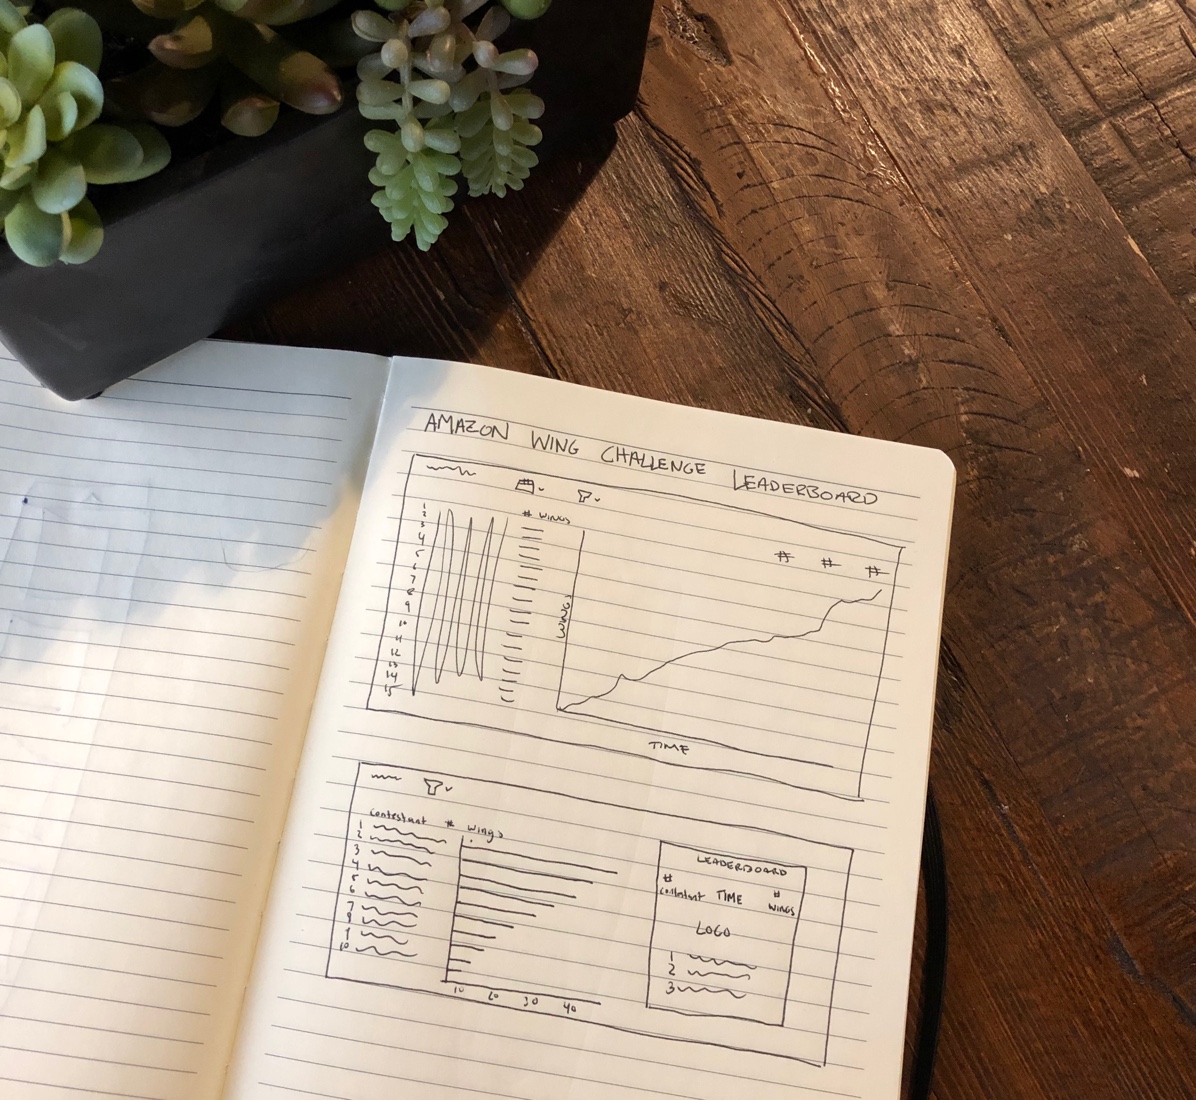 AMAZON WING CHALLENGE LEADERBOARD
# WINGS
1
2
3
4
5
6
7
8
9
10
11
12
13
14
15
WINGS
# # #
TIME
contestant # wings
1
2
3
4
5
6
7
8
9
10
10 20 30 40
LEADERBOARD
# contestant TIME # WINGS
LOGO
1
2
3